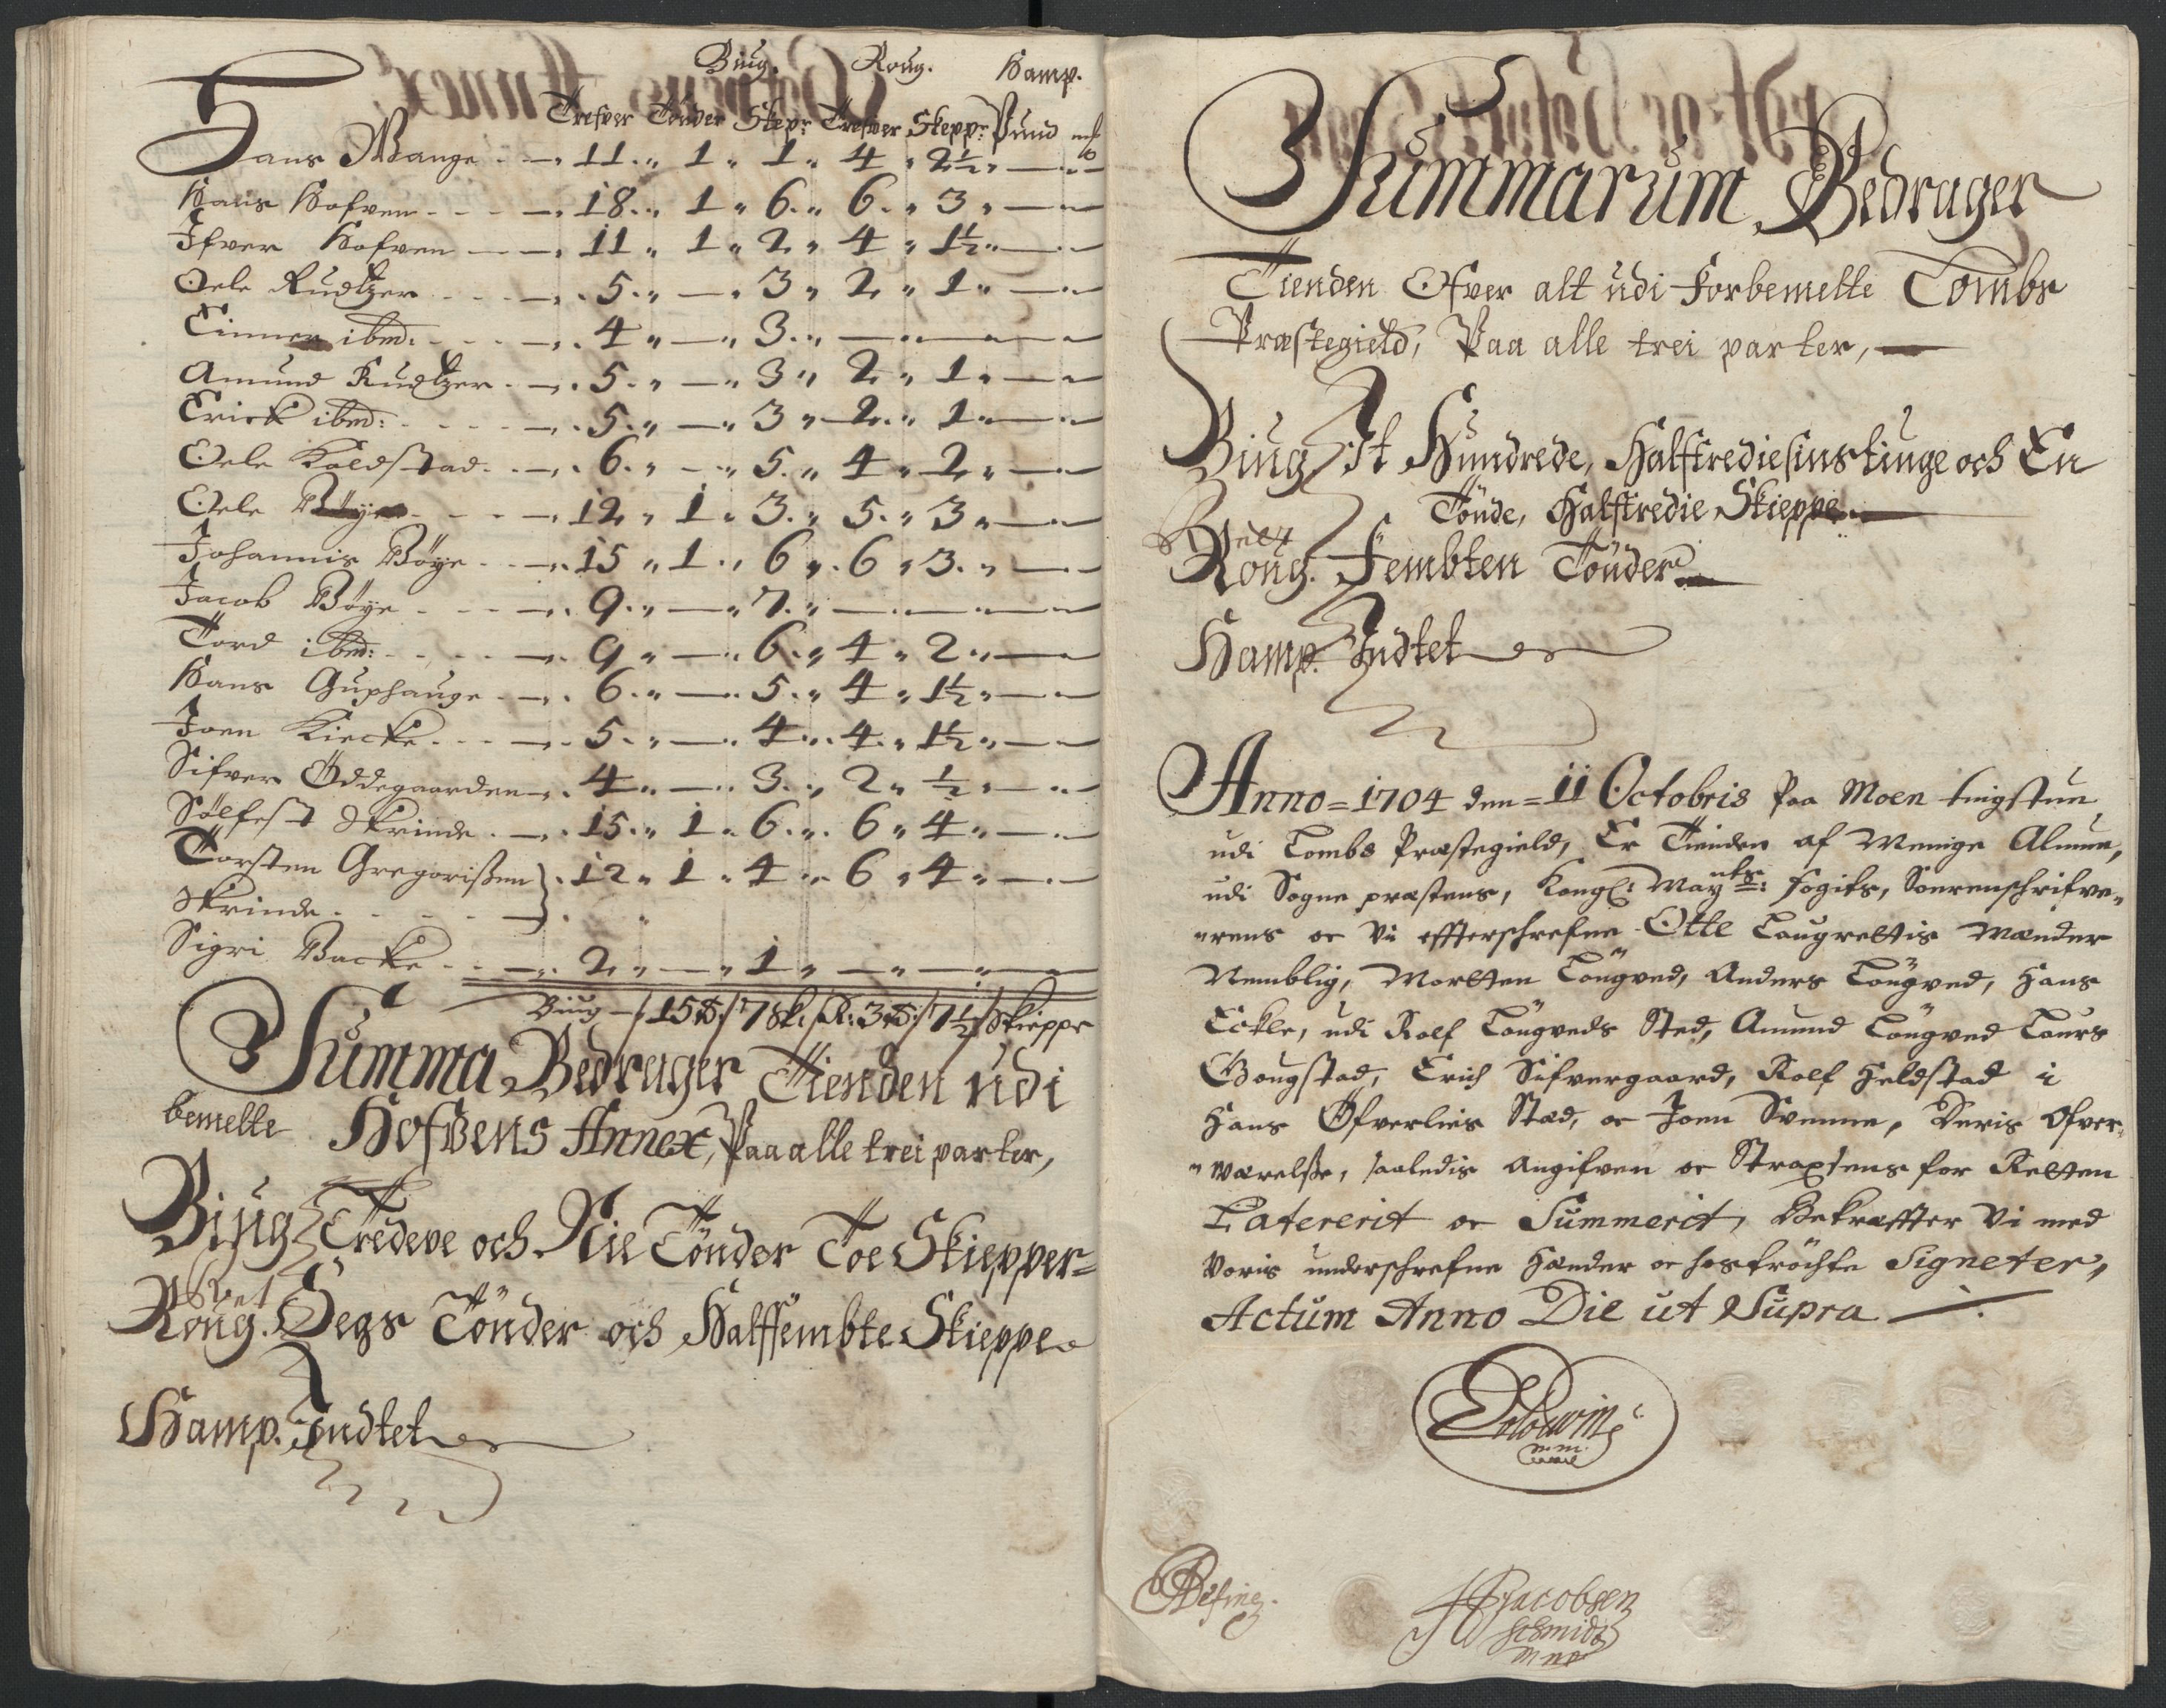 Biug. Roug. Hamp.
Trefver Tönder Skepr Trefver Skeppr Pund
Hans Wange - - 11 „ 1 „ 1 „ 4 „ 2½ „ —
Hans Hofven - - - 18 „ 1 „ 6 „ 6 „ 3 „ —
Ifver Hofven - - 11 „ 1 „ 2 „ 4 „ 1½ „ —
Oele Rudtzer - - - 5 „ — „ 3 „ 2 „ 1 „ —
ibm: - - - 4 „ — „ 3 „ — — —
Amund Rudtzer - - 5 „ — „ 3 „ 2 „ 1 „ —
Erick ibm: - - - 5 „ — „ 3 „ 2 „ 1 „ —
Oele Koldstad - - 6 „ — „ 5 „ 4 „ 2 „ —
Oele Böye - - - 12 „ 1 „ 3 „ 5 „ 3 „ —
Johannis Böye - - 15 „ 1 „ 6 „ 6 „ 3 „ —
Jacob Böye - - - 9 „ — „ 7 „ — — —
Tord ibm: - - - 9 „ — „ 6 „ 4 „ 2 „ —
Hans Guphauge - - 6 „ — „ 5 „ 4 „ 1½ „ —
Joen Kircke - - - 5 „ — „ 4 „ 4 „ 1½ „ —
Sifver Öddegaarden - 4 „ — „ 3 „ 2 „ ½ „ —
Sölfest Skrinde - - 15 „ 1 „ 6 „ 6 „ 4 „ —
Torsten Gregorißen } 12 „ 1 „ 4 „ 6 „ 4 „ —
Skrinde - - - -
Sigri Backe - - - 2 „ — „ 1 „ — — —
Biug — / 15 T: / 7 Sk: / R: 3 T: / 7½ / Skieppr
Summa Bedrager Tienden udi
bemelte Hofvens Annex, Paa alle trei parter,
Biug Tredeve och Nie Tönder Toe Skiepper
Roug. Segs Tönder och Halffembte Skieppe
Hamp. Indtet
Summarum Bedrager
Tienden Ofver alt udi Forbemelte Tombs
Præstegield, Paa alle trei parter,
Biug It Hundrede, Halftrediesinstiuge och En
Tönde, Halftredie Skieppe
Roug. Fembten Tönder
Hamp. Indtet
Anno = 1704 den = 11 Octobris Paa Moen tingstue
udi Tombs Præstegield, Er Tienden af Menige Almue,
udi Sogne præstens, Kongl: Mayts: fogits, Sorenschrifve„
„rens oc Vi effterschrefne Otte Laugrettis Mænder
Nemblig, Mortten Töugved, Anders Töugved, Hans
Eckle, udi Rolf Töugveds Sted, Amund Töugved Lours
Bougstad, Erich Sifvergaard, Rolf Heldstad i
Hans Öfverlies Stæd, oc Joen Svemme, Deris Ofver„
„Værelße, saaledis Angifven oc Straxsens for Retten
Laterarit oc Summerit, Bekræffter Vi med
Voris underschrefne Hænder oc hostrøchte Signeter,
Actum Anno Die ut Supra
Jacobsen
Schmidt
mpp